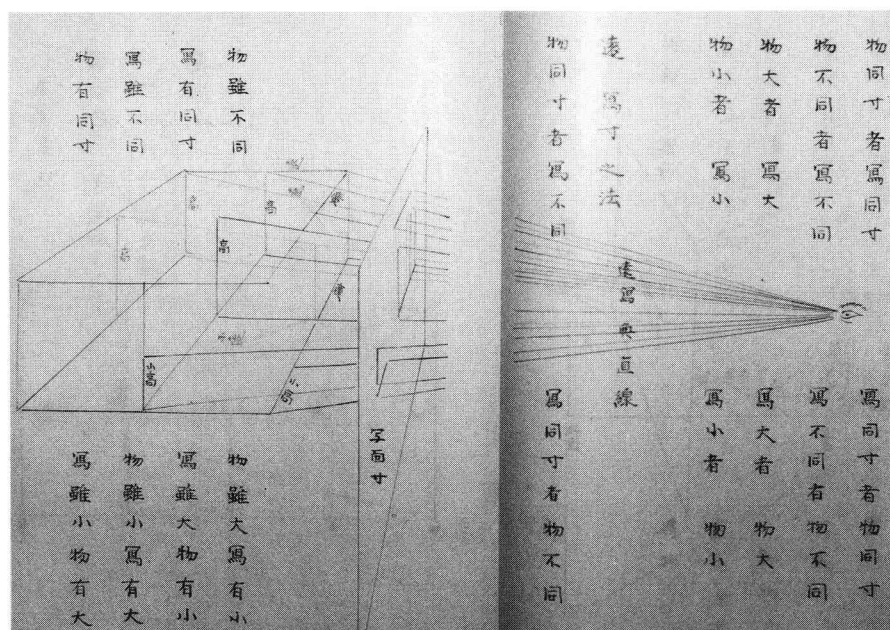 物同寸者寫同寸
物不同者寫不同
物大者 寫大
物小者 寫小
遠 寫寸之法
物同寸者寫不同
遠寫奥直線
寫同寸者物同寸
寫不同者物不同
寫大者 物大
寫小者 物小
寫同寸者物不同
物雖不同
寫有同寸
寫雖不同
物有同寸
高
高
高
高
小高
写面寸
物雖大寫有小
寫雖大物有小
物雖小寫有大
寫雖小物有大